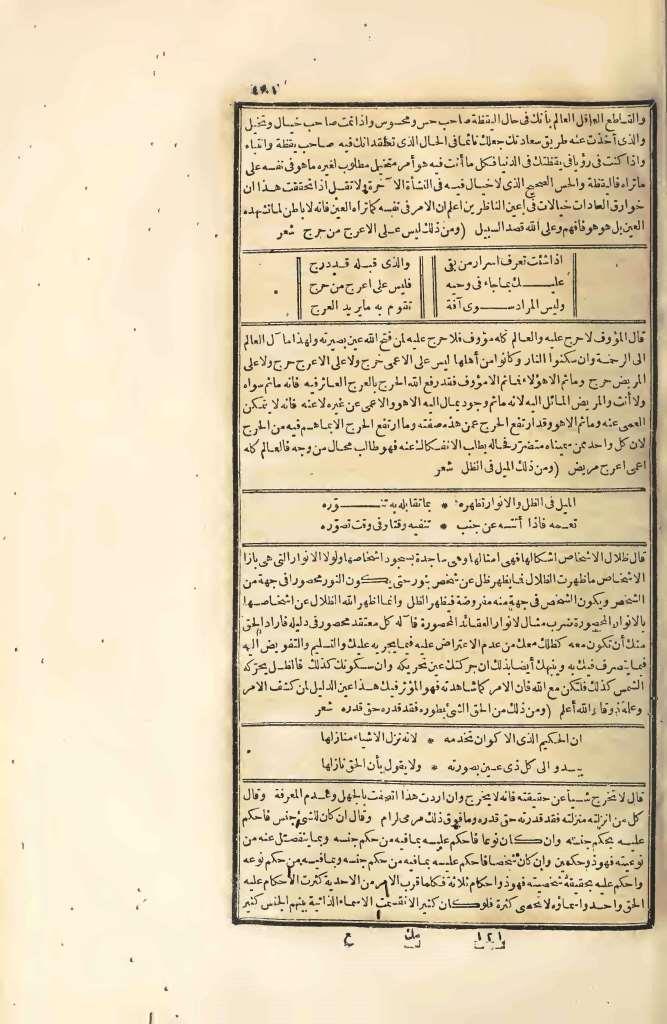 ٤٨١
والقاطع العاقل العالم بأنك في حال اليقظة صاحب حس ومحسوس واذا نمت صاحب خيال وتخيل
والذى أخذت عنه طريق سعادتك جعلك نائما فى الحال الذى تعتقد انك فيه صاحب يقظة وانتباه
واذا كنت فى رؤيا فى يقظتك فى الدنيا فكل ما أنت فيه هو أمر متخيل مطلوب لغيره ما هو فى نفسه على
ما تراه فاليقظة والحس الصحيح الذى لا خيال فيه فى النشأة الآخرة ولا تقل اذا تحققت هذا ان
خوارق العادات خيالات فى أعين الناظرين اعلم ان الامر فى نفسه كما تراه العين فانه لا باطن لما تشهده
العين بل هو هو فافهم وعلى الله قصد السبيل (ومن ذلك ليس على الاعرج من حرج شعر
اذا شئت تعرف اسرار من بقى والذى قبله قد درج
عليـــك بما جاء فى وحيه فليس على اعرج من حرج
وليس المراد ســـوى آفة تقوم به ما يريد العرج
قال المؤوف لا حرج عليه والعالم كله مؤوف فلا حرج عليه لمن فتح الله عين بصيرته ولهذا مآل العالم
الى الرحمة وان سكنوا النار وكانوا من أهلها ليس على الاعمى حرج ولا على الاعرج حرج ولا على
المريض حرج وما ثم الا هؤلاء فما ثم الا مؤوف فقد رفع الله الحرج بالعرج العاثر فيه فانه ما ثم سواه
ولا أنت والمريض المائل اليه لانه ما ثم وجود يمال اليه الا هو والاعمى عن غيره لا عنه فانه لا يتمكن
العمى عنه وما ثم الا هو وقد ارتفع الحرج عمن هذه صفته وما ارتفع الحرج الا بما هم فيه من الحرج
لان كل واحد ممن سميناه متضرر بحاله يطلب الانفكاك عنه فهو طالب محال من وجه فالعالم كله
اعمى اعرج مريض (ومن ذلك الميل فى الظل شعر
الميل فى الظل والانوار تظهره * بما تقابله به تنـــوّره
تعمه فاذا أتته عن جنب * تنفيه وقتا وفى وقت تصوّره
قال ظلال الاشخاص اشكالها فهى امثالها وهى ساجدة بسجود اشخاصها ولولا الانوار التى هى بازا
الاشخاص ما ظهرت الظلال فما يظهر ظل عن شخص بنور حتى يكون النور محصورا فى جهة من
الشخص ويكون الشخص فى جهة منه مفروضة فيظهر الظل وانما اظهر الله الظلال عن اشخاصها
بالانوار المحصورة ضرب مثال لانوار العقائد المحصورة فاله كل معتقد محصور فى دليله فاراد الحق
منك أن تكون معه كظلك معك من عدم الاعتراض عليه فيما يجريه عليك والتسليم والتفويض اليه
فيما يتصرف فيك به وينبهك أيضا بذلك ان حركتك عين تحريكه وان سكونك كذلك فالظل يحركه
الشمس كذلك فلتكن مع الله فان الامر كما شاهدته فهو المؤثر فيك هذا عين الدليل لمن كشف الامر
وعلمه ذوقا والله أعلم (ومن ذلك من الحق الشئ بطوره فقد قدره حق قدره شعر
ان الحكيم الذى الاكوان تخدمه * لانه نزل الاشياء منازلها
يبدو الى كل ذى عين بصورته * ولا يقول بأن الحق نازلها
قال لا تخرج شيأ عن حقيقته فانه لا يخرج وان اردت هذا اتصفت بالجهل وعدم المعرفة وقال
كل من انزلته منزلته فقد قدرته حق قدره وما فوق ذلك مرمى لرام وقال ان كان للشئ جنس فاحكم
عليه بحكم جنسه وان كان نوعا فاحكم عليه بما فيه من حكم جنسه وبما ينفصل عنه من
نوعيته فهو ذو حكمين وان كان شخصا فاحكم عليه بما فيه من حكم جنسه وبما فيه من حكم نوعه
واحكم عليه بحقيقة شخصيته فهو ذو احكام ثلاثة فكلما قرب الامر من الاحدية كثرت الأحكام عليه
الحق واحد واسماؤه لا تحصى كثرة فلو كان كثيرا لانقسمت الاسماء الذاتية بينهم الجنس كثير
١٢١ مك ع